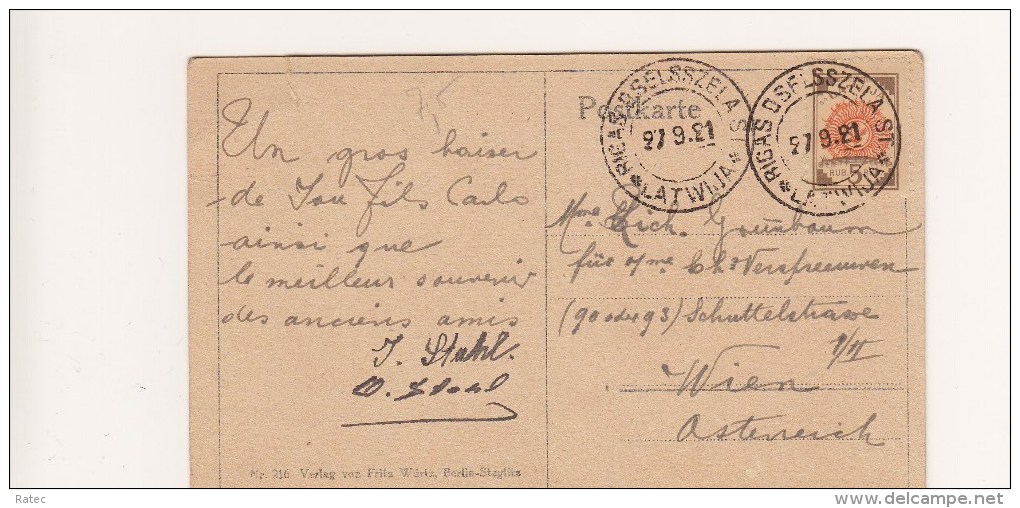 Un gros baiser
de Ton fils Carlo
ainsi que
le meilleur souvenir
des anciens amis
J. Stahl.
Nr. 216 Verlag von Fritz Würtz, Berlin-Steglitz
Postkarte
RIGAS DSELSSZELA ST
27 9.21
*LATWIJA*
RIGAS DSELSSZELA ST
27 9.21
*LATWIJA*
RUB. 3
Mme Mich. Grünbaum
für Mme Chs
(90 oder 93) Schüttelstrasse
1/II
Wien
Österreich
Ratec
www.delcampe.net